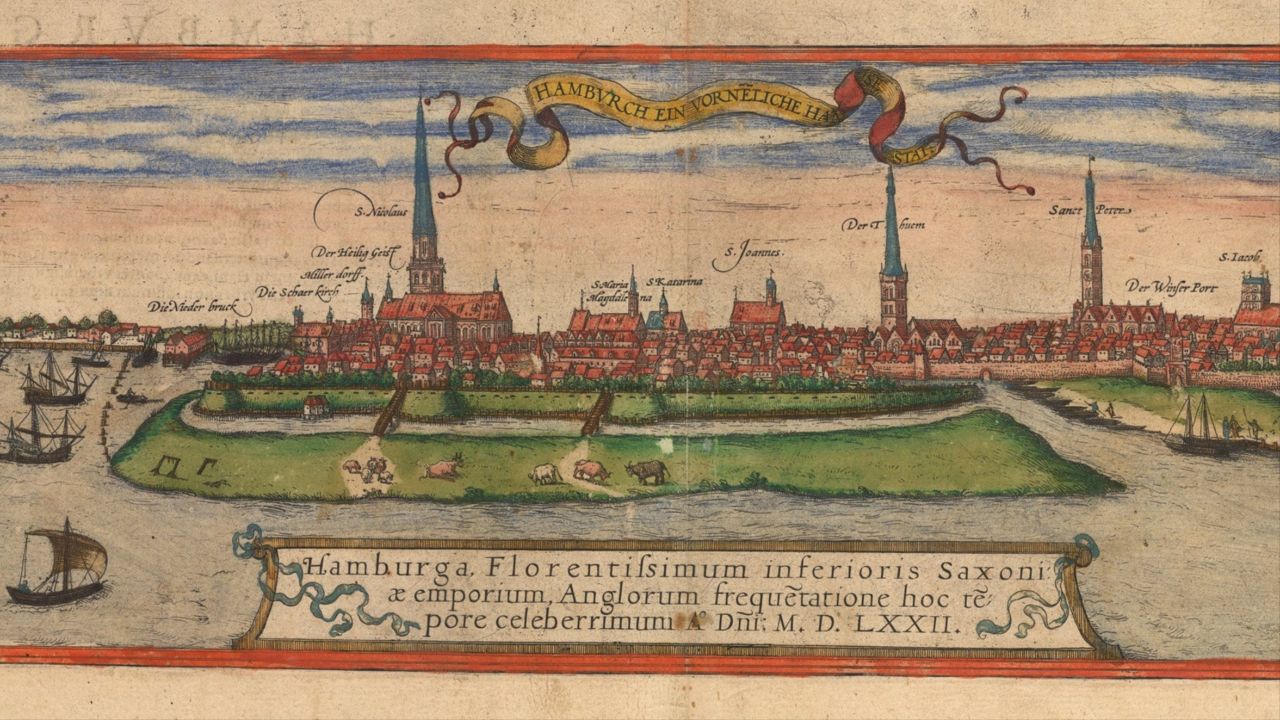 HAMBVRCH EIN VORNĒLICHE HANSE STAT.
S. Nicolaus
Der Heilig Geist
Miller dorff.
Die Schaer kirch
Die Nieder bruck
S. Maria Magdalena
S. Katarina
S. Joannes.
Der Thuem
Sanct Peter
Der Winser Port
S. Iacob.
Hamburga, Florentiſsimum inferioris Saxoni:
æ emporium, Anglorum frequētatione hoc tē:
pore celeberrimum Aº Dn̄i: M. D. LXXII.